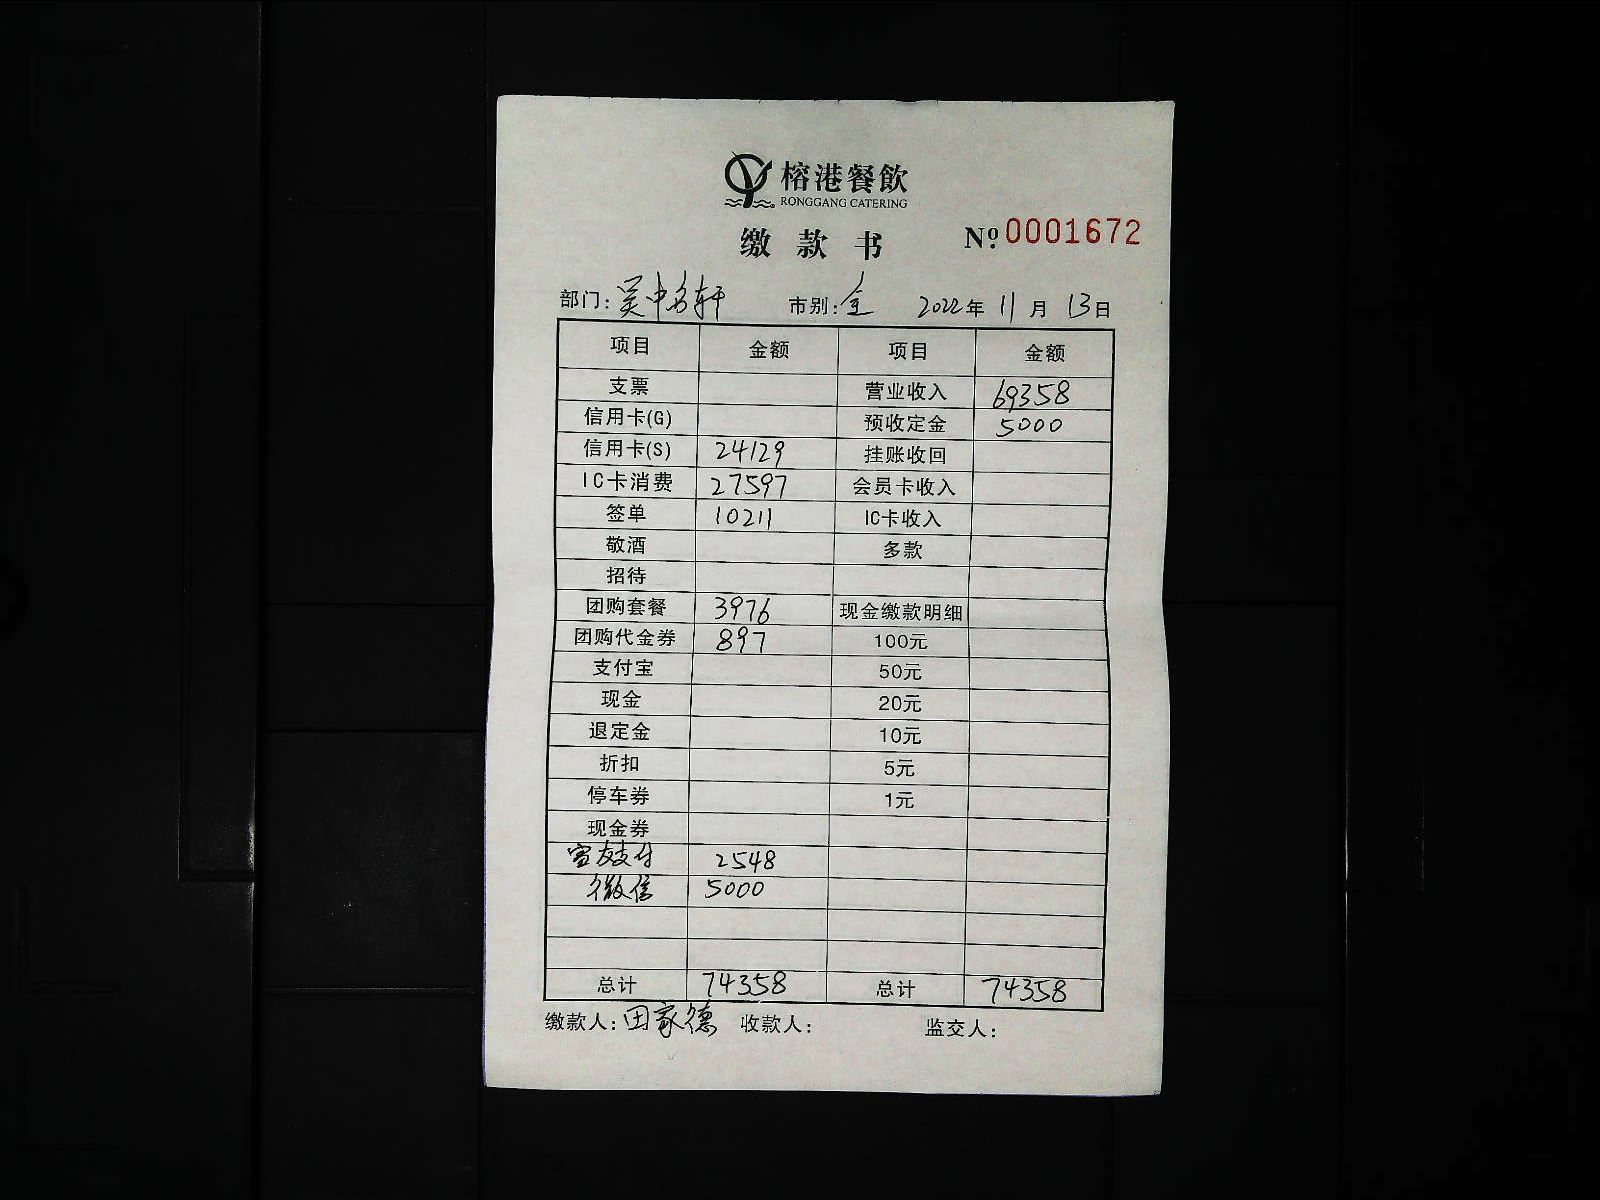 榕港餐飲
RONGGANG CATERING
缴款书 Nº 0001672
部门: 吴中名轩 市别: 全 2022年 11月 13日
项目 金额 项目 金额
支票 营业收入 69358
信用卡(G) 预收定金 5000
信用卡(S) 24129 挂账收回
IC卡消费 27597 会员卡收入
签单 10211 IC卡收入
敬酒 多款
招待
团购套餐 3976 现金缴款明细
团购代金券 897 100元
支付宝 50元
现金 20元
退定金 10元
折扣 5元
停车券 1元
现金券
支付 2548
微信 5000
总计 74358 总计 74358
缴款人: 田家德 收款人: 监交人: